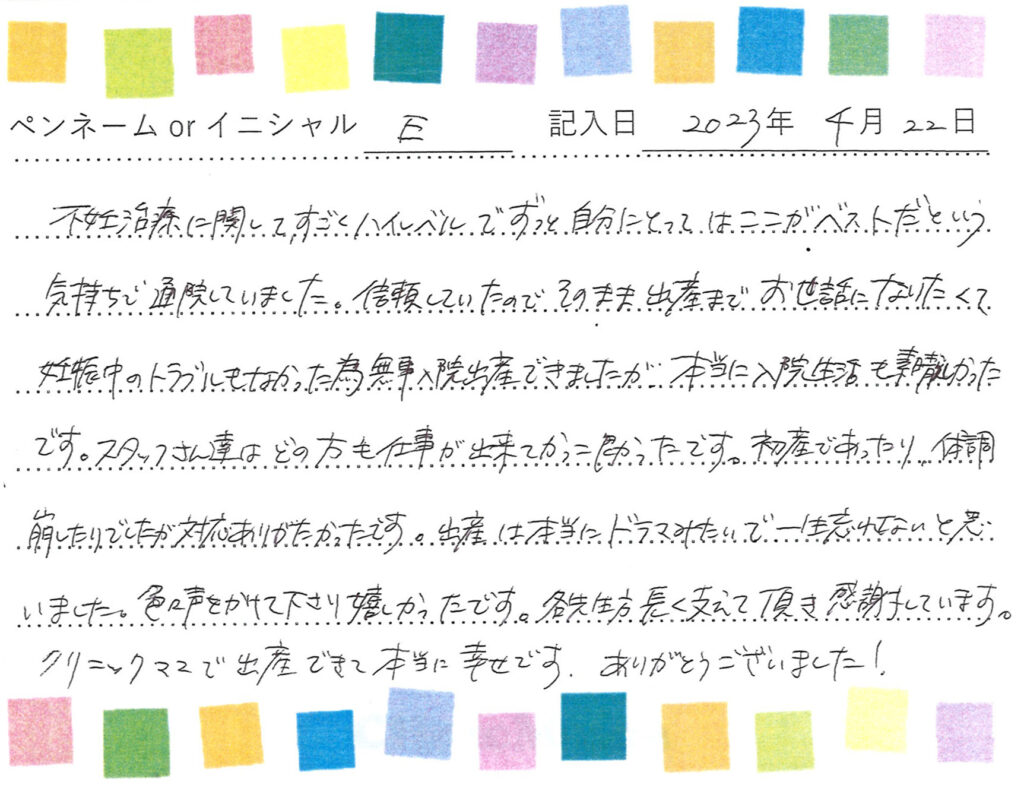 ペンネーム or イニシャル E 記入日 2023年 4月 22日
不妊治療に関して、すごくハイレベルでずっと自分にとってはここがベストだという
気持ちで通院していました。信頼していたので、そのまま出産までお世話になりたくて
妊娠中のトラブルもなかった為無事入院出産できましたが、本当に入院生活も素敵かった
です。スタッフさん達はどの方も仕事が出来てかっこ良かったです。初産であったり、体調
崩したりでしたが対応ありがたかったです。出産は本当にドラマみたいで一生忘れないと思
いました。色々声をかけて下さり嬉しかったです。各先生方長く支えて頂き感謝しています。
クリニックママで出産できて本当に幸せです。ありがとうございました!